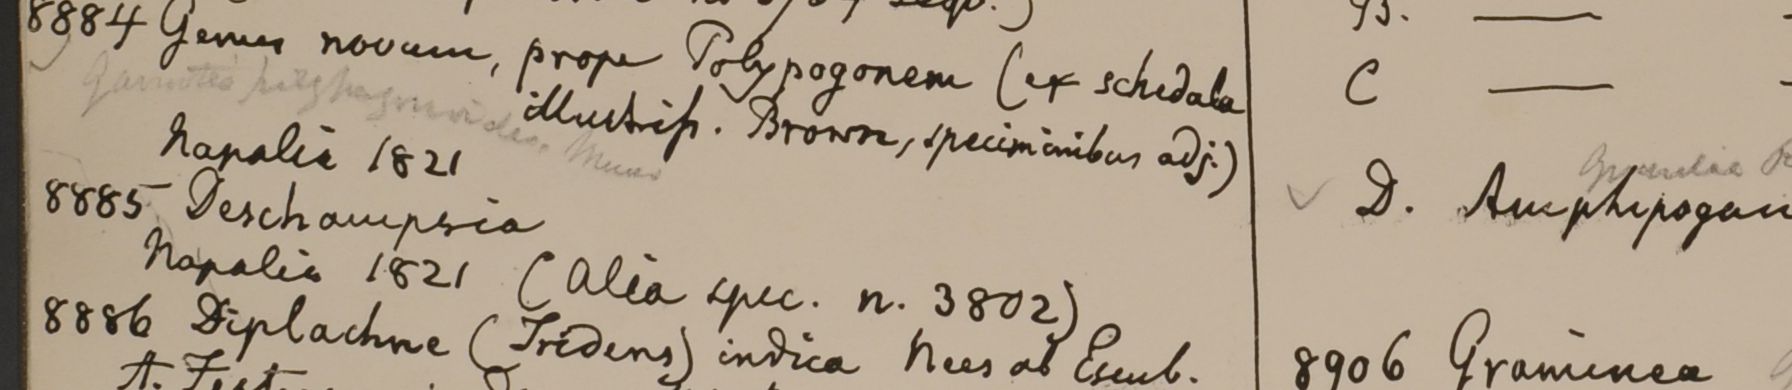 8884 Genus novum, prope Polypogonem (ex schedula
illustriss. Brown, speciminibus adj.)
Napalia 1821
8885 Deschampsia
Napalia 1821 (Alia spec. n. 3802)
8886 Diplachne (Tridens) indica Nees ab Esenb.
B. —
C —
D. Amphipogon
8906 Graminea